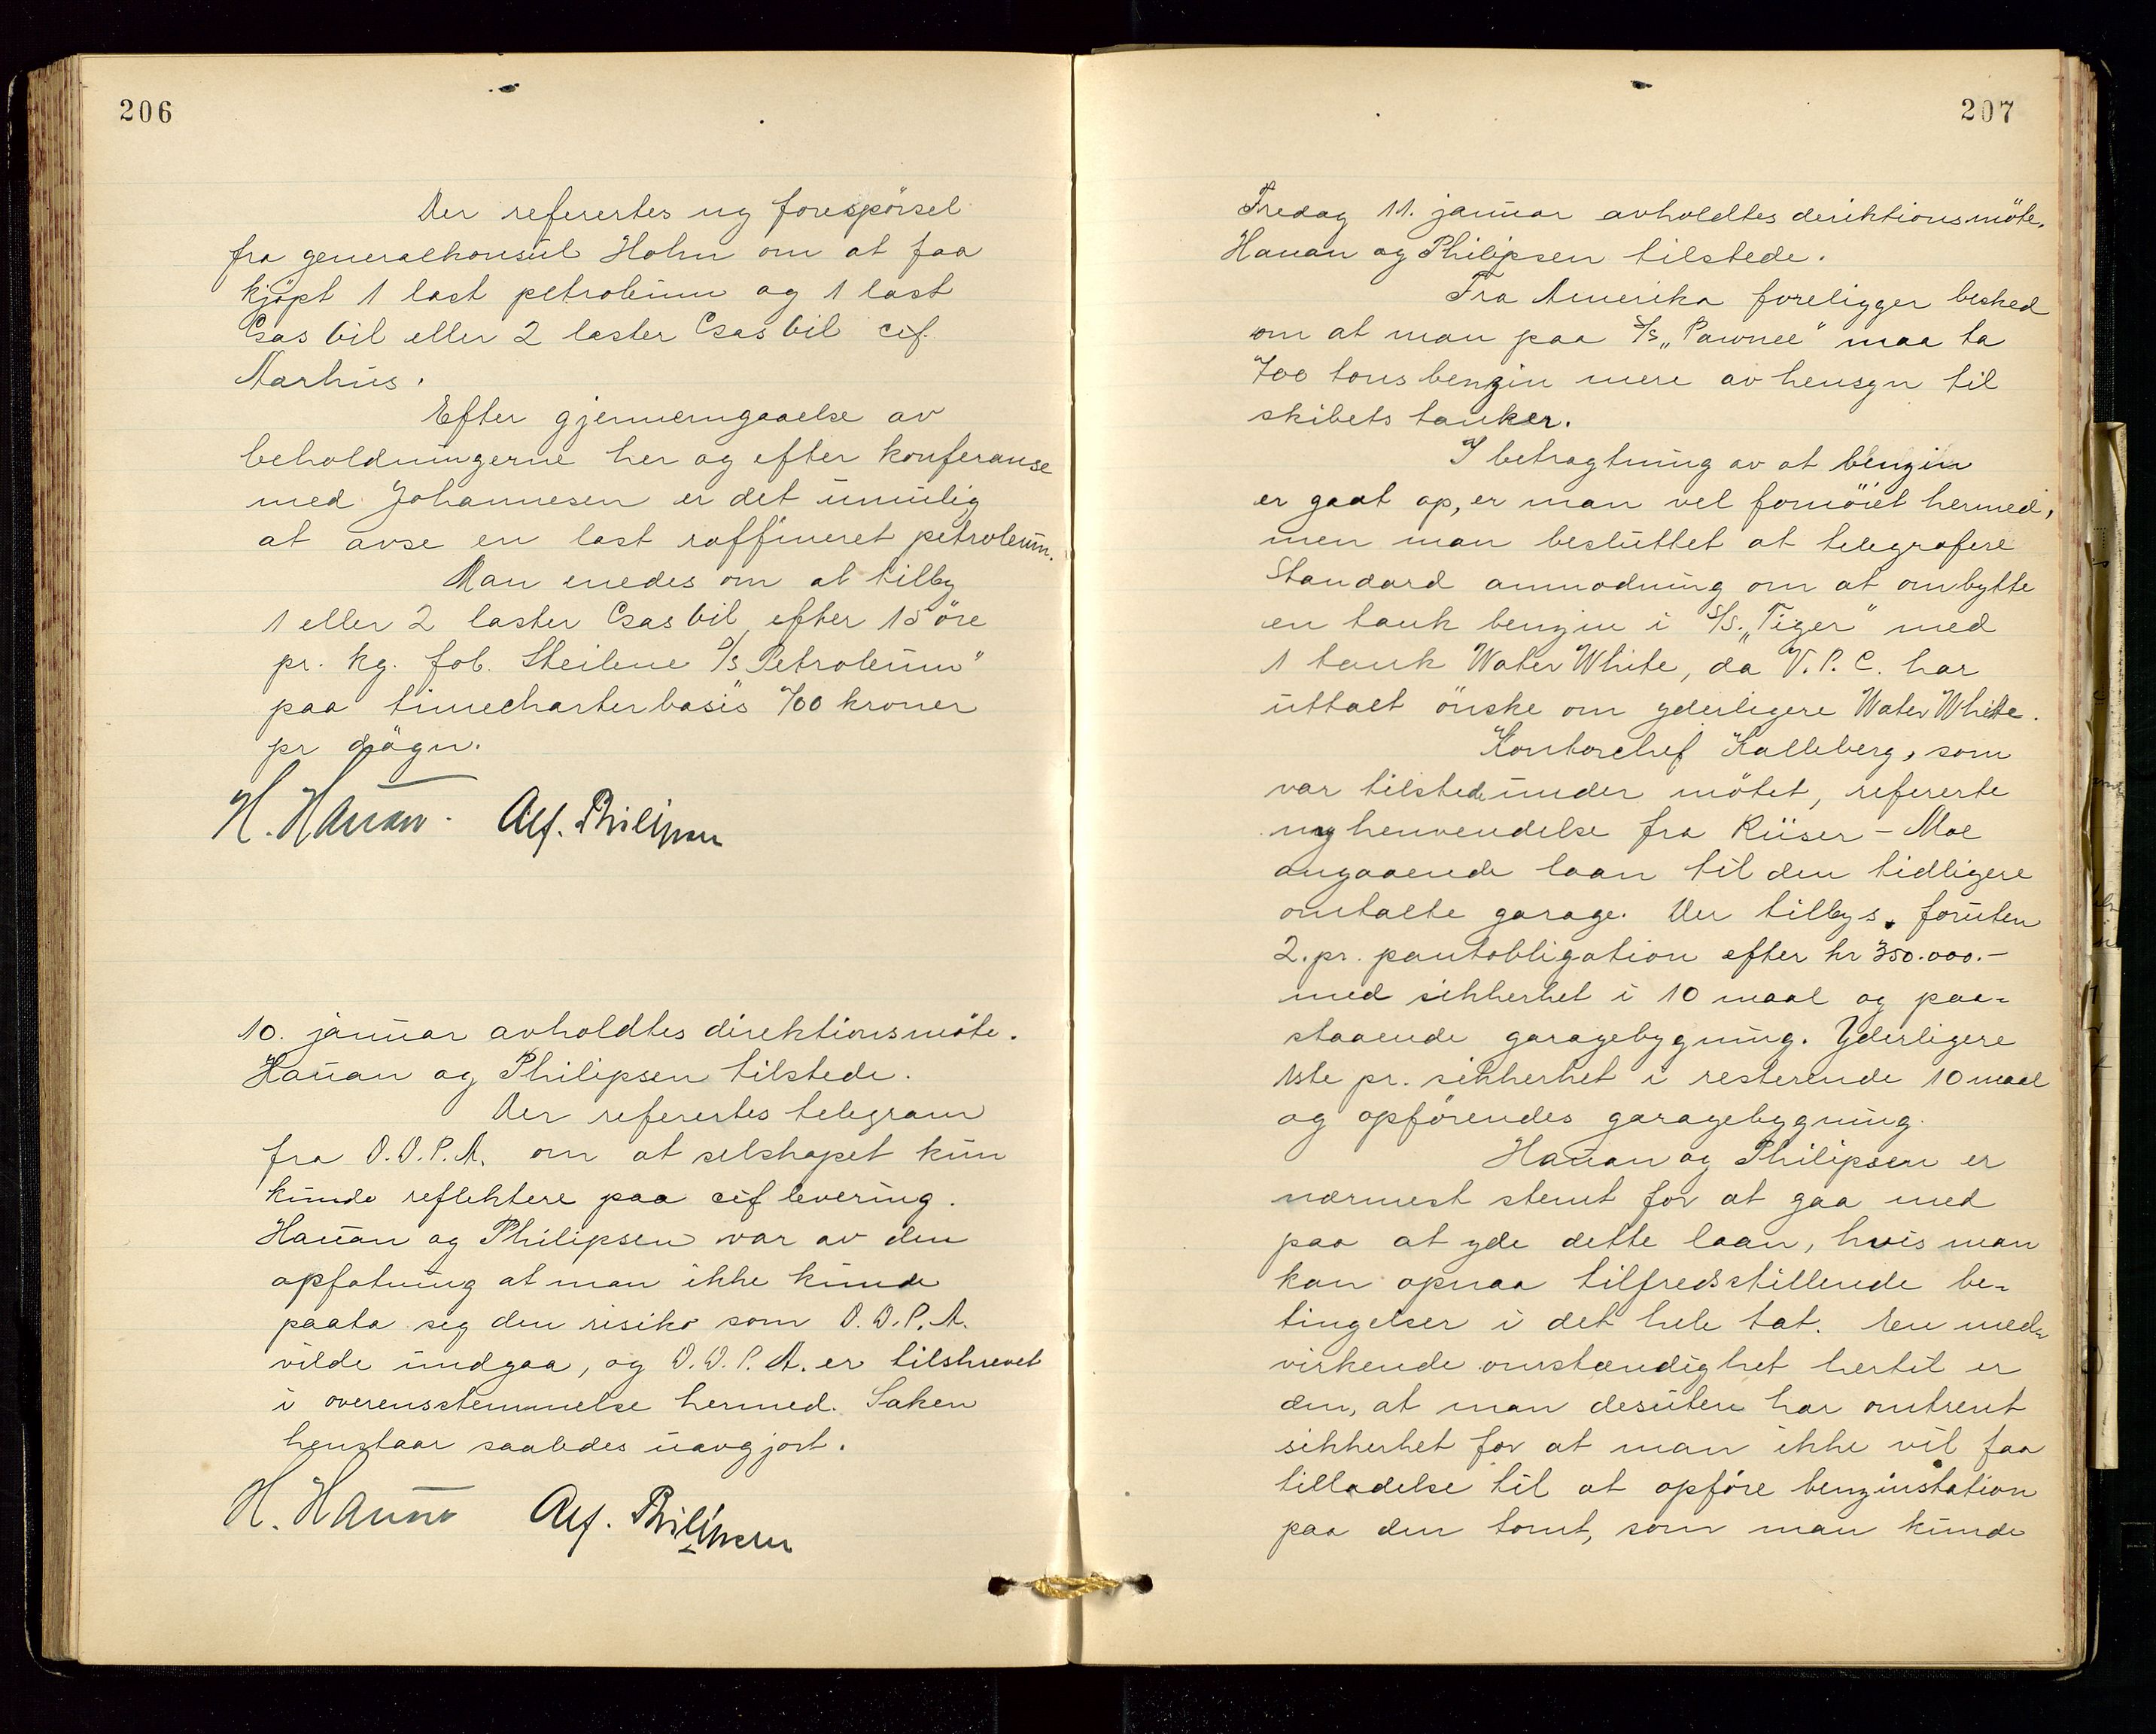 206
Der refertes ny forespörsel
fra generalkonsul Holm om at faa
kjöpt 1 last petroleum og 1 last
Gas Oil eller 2 laster Gas Oil cif.
Aarhus.
Efter gjennemgaaelse av
beholdningerne her og efter konferanse
med Johannesen er det umulig
at avse en last raffineret petroleum.
Man enedes om at tilby
1 eller 2 laster Gas Oil efter 15 öre
pr. kg. fob. Steilene D/S "Petroleum"
paa timecharterbasis 700 kroner
pr dögn.
H. Hauan. Alf. Philipsen
10. januar avholdtes direktionsmöte.
Hauan og Philipsen tilstede.
Der refertes telegram
fra D.D.P.A. om at selskapet kun
kunde reflektere paa cif levering.
Hauan og Philipsen var av den
opfatning at man ikke kunde
paata sig den risiko som D.D.P.A.
vilde undgaa, og D.D.P.A. er tilskrevet
i overensstemmelse hermed. Saken
henstaar saaledes uavgjort.
H. Hauan Alf. Philipsen
207
Fredag 11. januar avholdtes direktionsmöte.
Hauan og Philipsen tilstede.
Fra Amerika foreligger besked
om at man paa S/S „Pawnee" maa ta
700 tons benzin mere av hensyn til
skibets tanker.
I betragtning av at benzin
er gaat op, er man vel fornöiet hermed,
men man besluttet at telegrafere
Standard anmodning om at ombytte
en tank benzin i S/S. „Tiger" med
1 tank Water White, da V.P.C. har
uttalt önske om yderligere Water White.
Kontorchef Kalleberg, som
var tilstede under mötet, refererte
ny henvendelse fra Riiser - Moe
angaaende laan til den tidligere
omtalte garage. Der tilbys foruten
2. pr. pantobligation efter kr 350.000.-
med sikkerhet i 10 maal og paa-
staaende garagebygning. Yderligere
1ste pr. sikkerhet i resterende 10 maal
og opförendes garagebygning.
Hauan og Philipsen er
nærmest stemt for at gaa med
paa at yde dette laan, hvis man
kan opnaa tilfredsstillende be-
tingelser i det hele tat. En med-
virkende omstændighet hertil er
den, at man desuten har omtrent
sikkerhet for at man ikke vil faa
tilladelse til at opföre benzinstation
paa den tomt, som man kunde